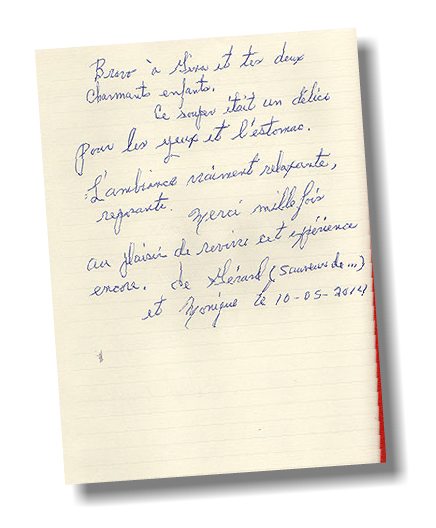 Bravo à Gina et tes deux
charmants enfants.
Ce souper était un délice
pour les yeux et l'estomac.
L'ambiance vraiment relaxante,
reposante. Merci mille fois
au plaisir de revivre cet expérience
encore. de Gérard (Saveurs de...)
et Monique le 10-05-2014